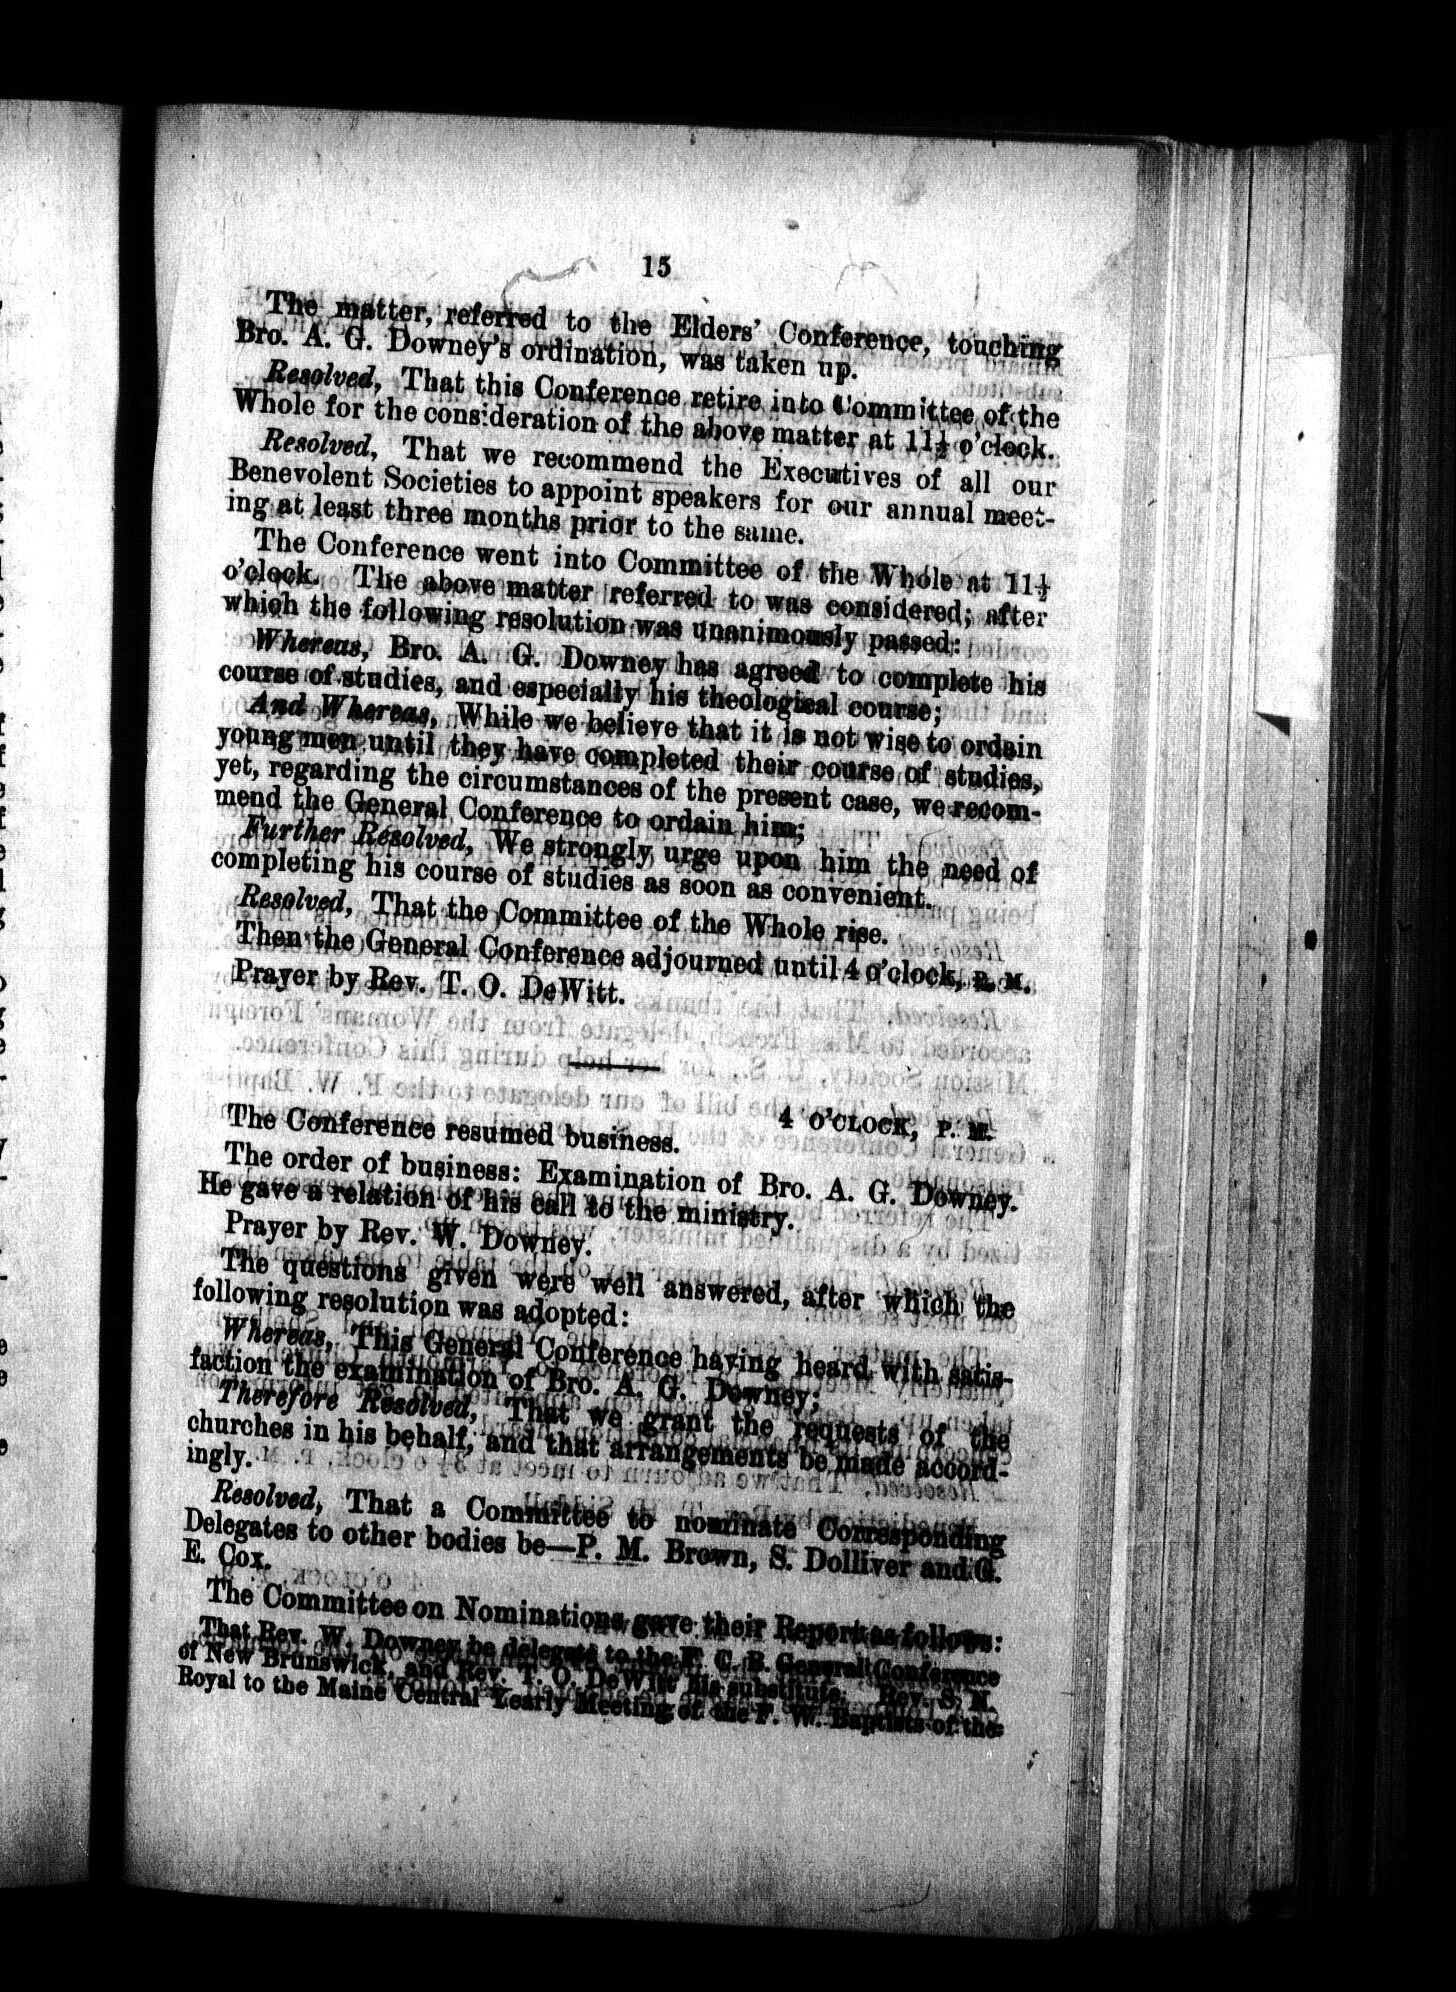 15
The matter, referred to the Elders' Conference, touching
Bro. A. G. Downey's ordination, was taken up.
Resolved, That this Conference retire into Committee of the
Whole for the consideration of the above matter at 11½ o'clock.
Resolved, That we recommend the Executives of all our
Benevolent Societies to appoint speakers for our annual meet-
ing at least three months prior to the same.
The Conference went into Committee of the Whole at 11½
o'clock. The above matter referred to was considered; after
which the following resolution was unanimously passed:
Whereas, Bro. A. G. Downey has agreed to complete his
course of studies, and especially his theological course;
And Whereas, While we believe that it is not wise to ordain
young men until they have completed their course of studies,
yet, regarding the circumstances of the present case, we recom-
mend the General Conference to ordain him;
Further Resolved, We strongly urge upon him the need of
completing his course of studies as soon as convenient.
Resolved, That the Committee of the Whole rise.
Then the General Conference adjourned until 4 o'clock, P. M.
Prayer by Rev. T. O. DeWitt.
4 O'CLOCK, P. M.
The Conference resumed business.
The order of business: Examination of Bro. A. G. Downey.
He gave a relation of his call to the ministry.
Prayer by Rev. W. Downey.
The questions given were well answered, after which the
following resolution was adopted:
Whereas, This General Conference having heard with satis-
faction the examination of Bro. A. G. Downey;
Therefore Resolved, That we grant the requests of the
churches in his behalf, and that arrangements be made accord-
ingly.
Resolved, That a Committee to nominate Corresponding
Delegates to other bodies be—P. M. Brown, S. Dolliver and G.
E. Cox.
The Committee on Nominations gave their Report as follows:
That Rev. W. Downey be delegate to the F. C. B. General Conference
of New Brunswick, and Rev. T. O. DeWitt his substitute. Rev. S. N.
Royal to the Maine Central Yearly Meeting of the F. W. Baptists of the